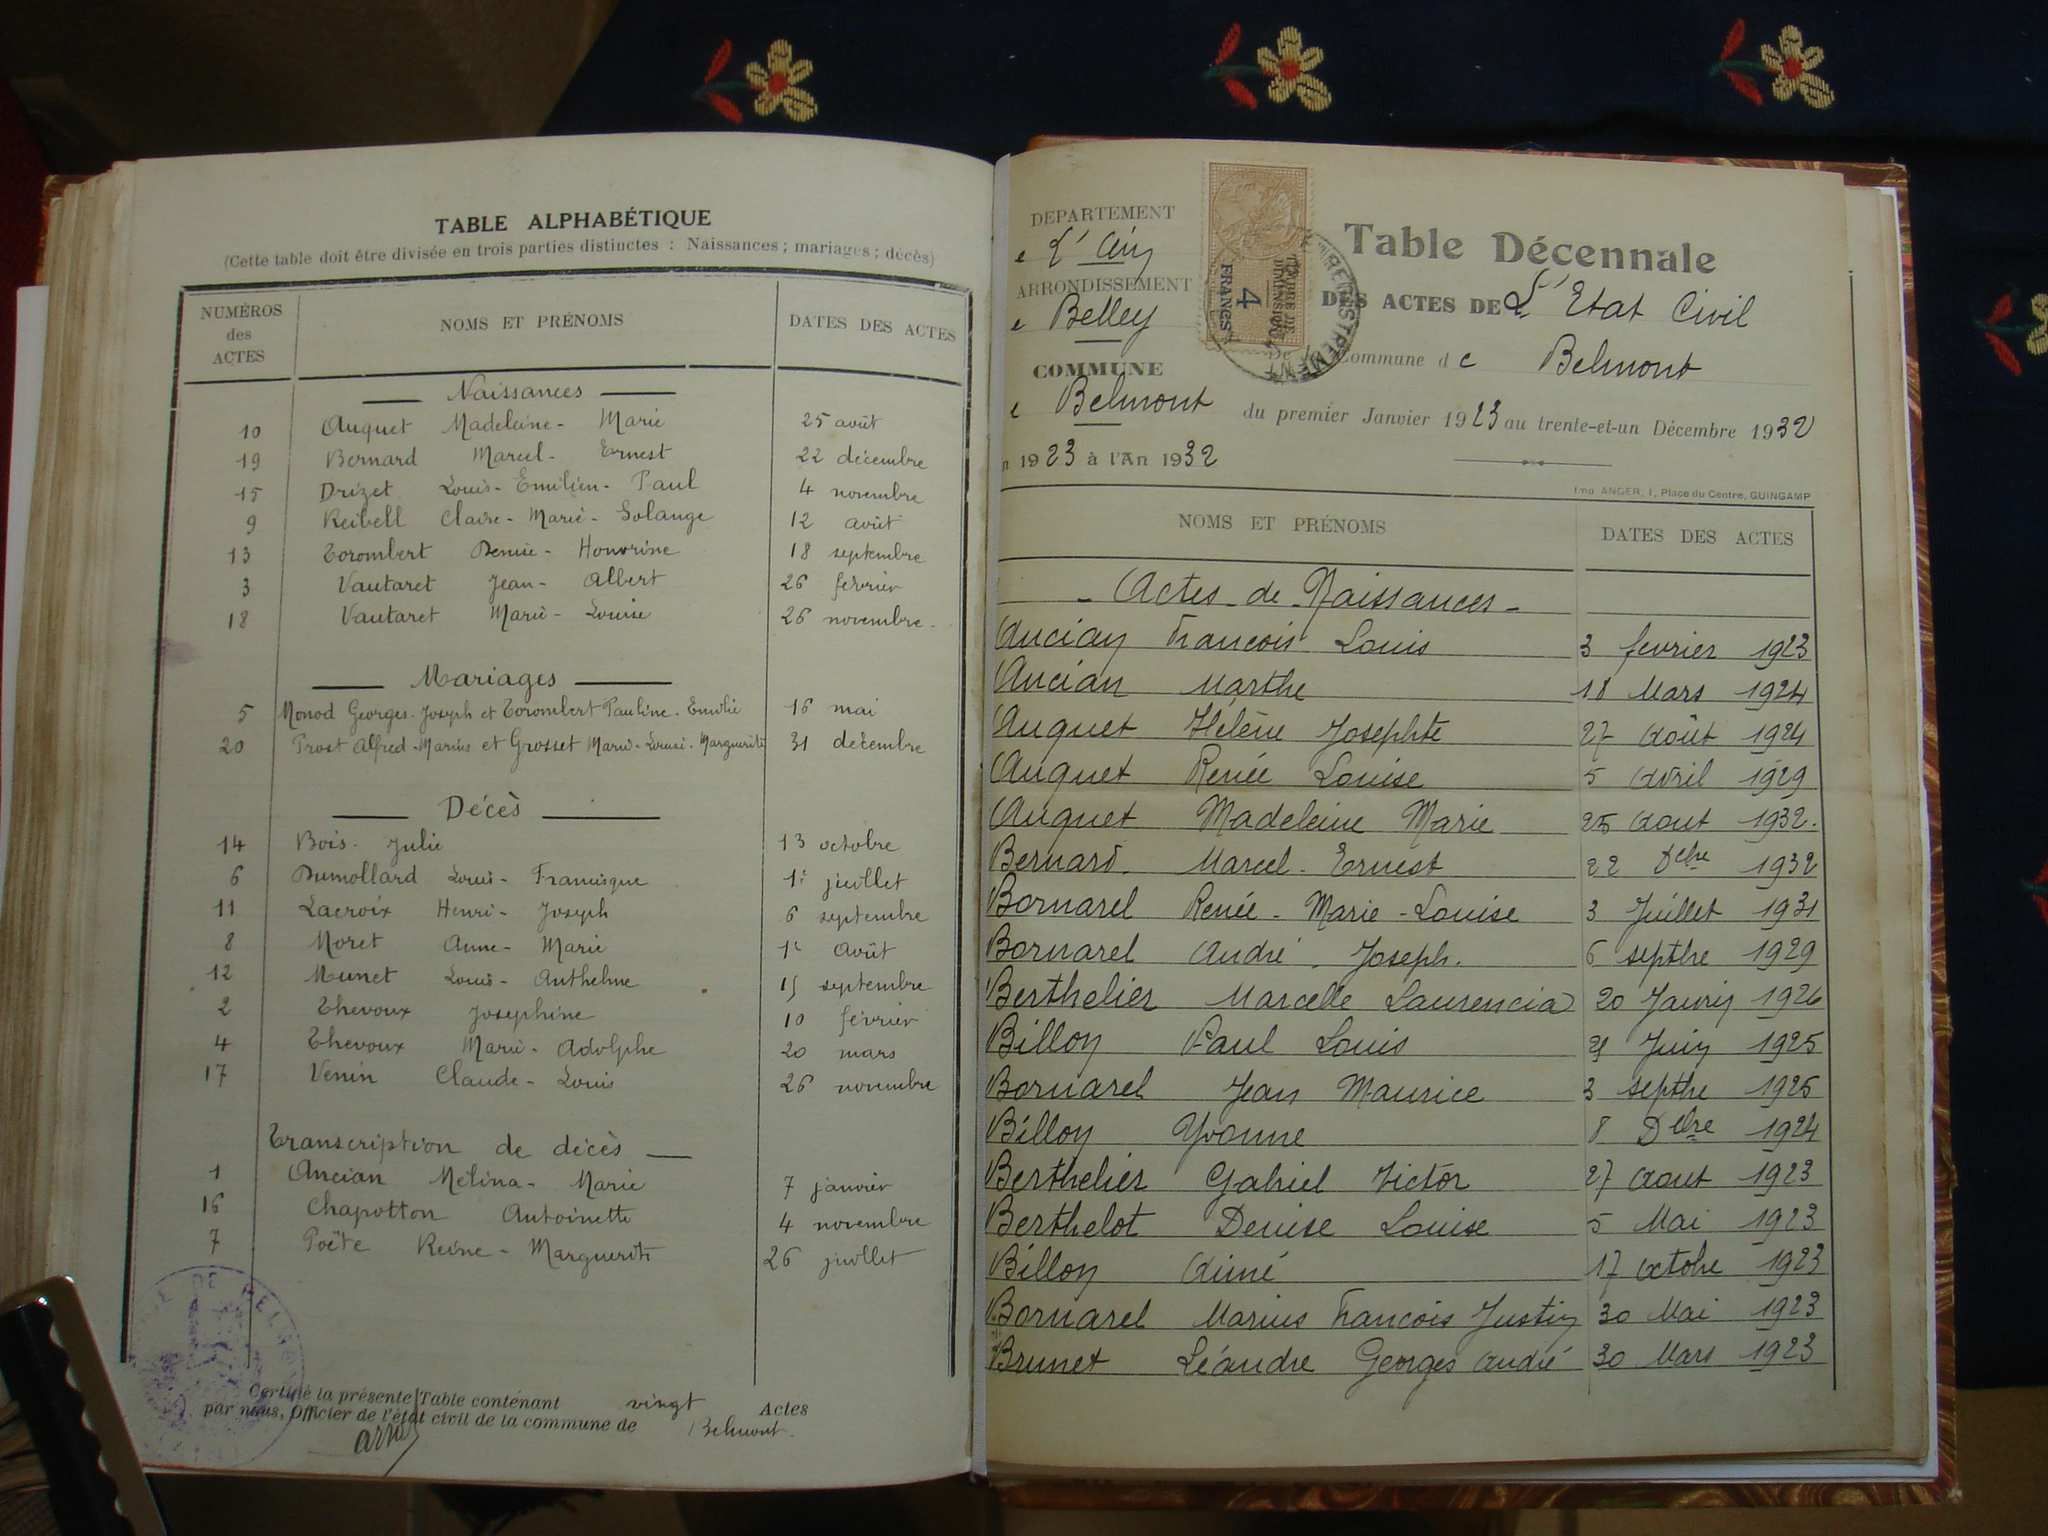 TABLE ALPHABÉTIQUE
(Cette table doit être divisée en trois parties distinctes : Naissances ; mariages ; décès)
NUMÉROS des ACTES NOMS ET PRÉNOMS DATES DES ACTES
Naissances
10 Auguet Madeleine - Marie 25 août
19 Bernard Marcel - Ernest 22 décembre
15 Drizet Louis - Emilien - Paul 4 novembre
9 Reibell Claire - Marie - Solange 12 août
13 Torombert Denise - Honorine 18 septembre
3 Vautaret Jean - Albert 26 février
18 Vautaret Marie - Louise 26 novembre
Mariages
5 Monod Georges - Joseph et Torombert Pauline - Emilie 16 mai
20 Prost Alfred - Marius et Grosset Marie - Louise - Marguerite 31 décembre
Décès
14 Bois - Julie 13 octobre
6 Dumollard Louis - Francisque 1er juillet
11 Lacroix Henri - Joseph 6 septembre
8 Moret Anne - Marie 1er Août
12 Munet Louis - Anthelme 15 septembre
2 Thevoux Josephine 10 février
4 Thevoux Marie - Adolphe 20 mars
17 Venin Claude - Louis 26 novembre
Transcription de décès
1 Ancian Mélina - Marie 7 janvier
16 Chapotton Antoinette 4 novembre
7 Poëte Reine - Marguerite 26 juillet
Certifié la présente Table contenant vingt Actes
par nous, Officier de l'état civil de la commune de Belmont.
DEPARTEMENT
e L'Ain
ARRONDISSEMENT
e Belley
COMMUNE
e Belmont
n 1923 à l'An 1932
4
FRANCS
Table Décennale
DES ACTES DE L'Etat Civil
De la Commune de Belmont
du premier Janvier 1923 au trente-et-un Décembre 1932
Imp. ANGER, 1, Place du Centre, GUINGAMP
NOMS ET PRÉNOMS DATES DES ACTES
- Actes - de - Naissances -
Ancian François Louis 3 fevrier 1923
Ancian Marthe 18 Mars 1924
Auguet Hélène Josephte 27 Août 1924
Auguet Renée Louise 5 Avril 1929
Auguet Madeleine Marie 25 Aout 1932.
Bernard. Marcel - Ernest 22 Dcbre 1932
Bornarel Renée - Marie - Louise 3 Juillet 1931
Bornarel André Joseph. 6 septbre 1929
Berthelier Marcelle Laurencia 20 Janvier 1926
Billon Paul Louis 21 Juin 1925
Bornarel Jean Maurice 3 septbre 1925
Billon Yvonne 8 Dcbre 1924
Berthelier Gabriel Victor 27 Aout 1923
Berthelot Denise Louise 5 Mai 1923
Billon Aimé 17 Octobre 1923
Bornarel Marius François Justin 30 Mai 1923
Brunet Léandre Georges André 30 Mars 1923